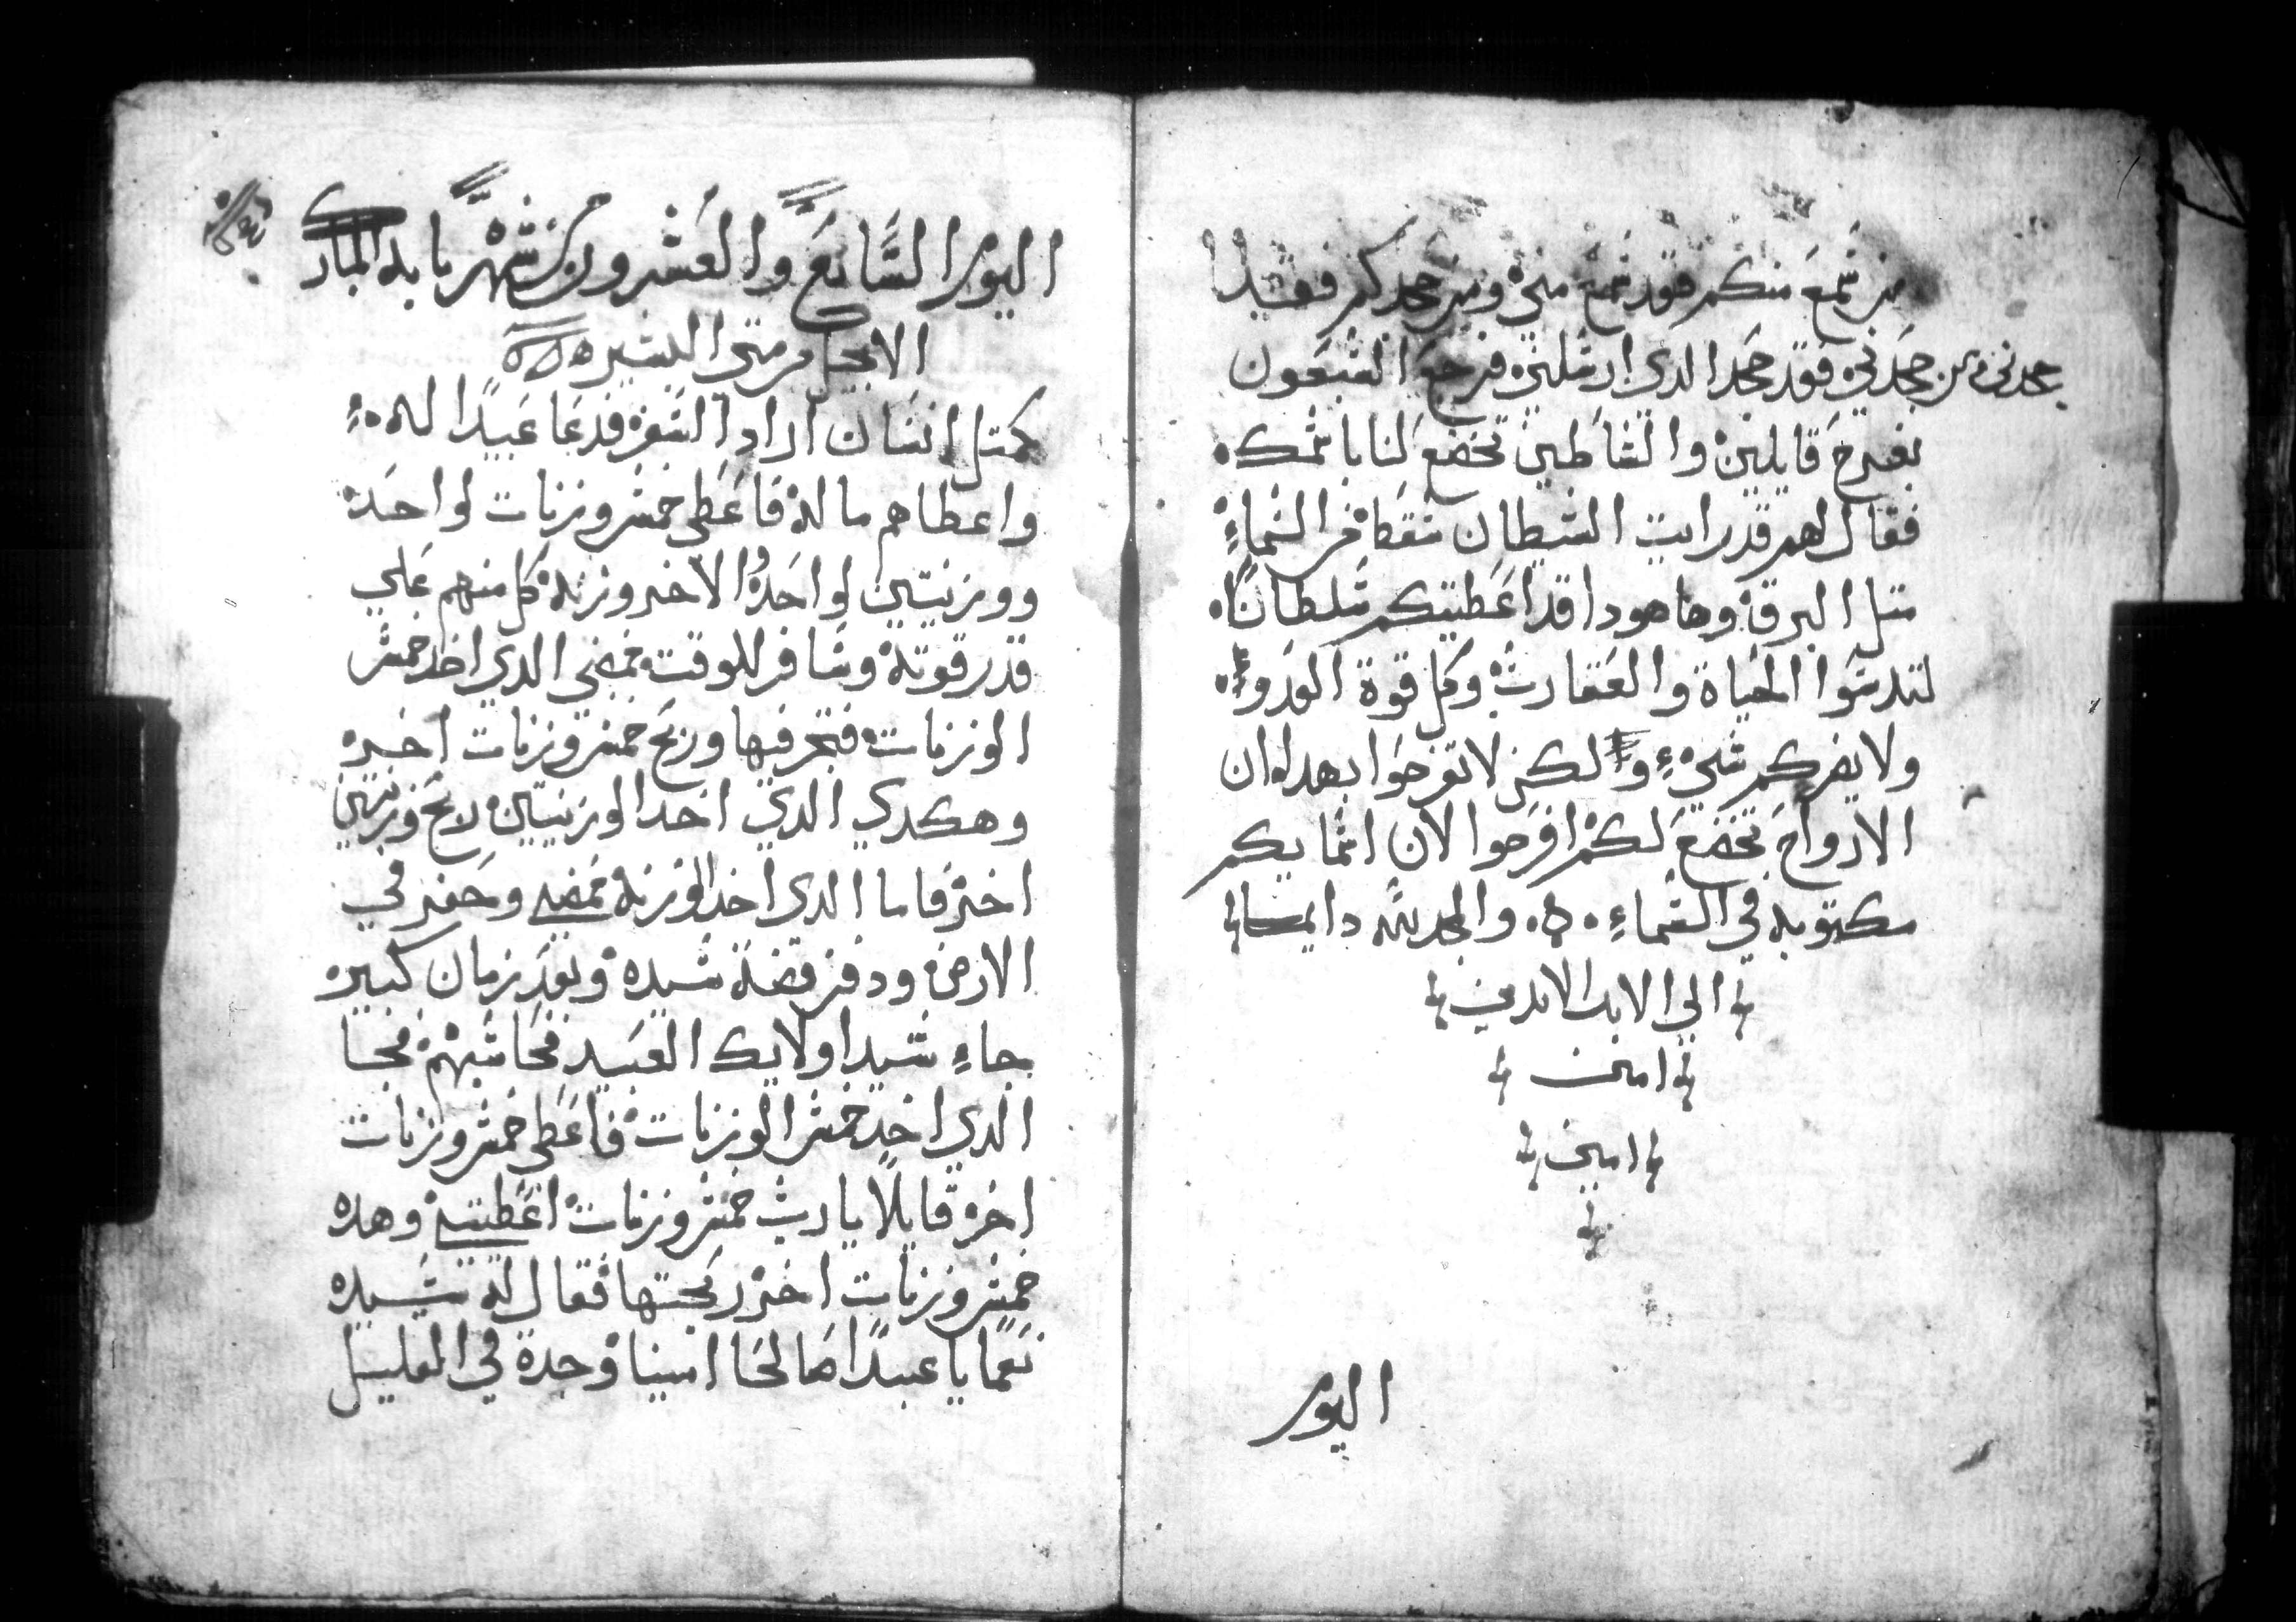 من سمع منكم فقد سمع مني ومن جحدكم فقد
جحدني ومن جحدني فقد جحد الدي ارسلني فرجع السبعون
بفرح قايلين والشاطين تخضع لنا باسمك
فقال لهم قد رايت الشيطان سقط من السماء
متل البرق وها هودا قد اعطيتكم سلطانا
لتدسوا الحياة والعقارب وكل قوة العدو
ولا يضركم شيء ولكن لا تفرحوا بهدا ان
الارواح تخضع لكم افرحوا لان اسمايكم
مكتوبه في السماء والمجد لله دايما
الي الابد الابدين
امين
امين
اليوم
اليوم السابع والعشرون من شهر بابه المبارك
الانجيل من متي البشير
كمتل انسان اراد السفر فدعا عبيدا له
واعطاهم ماله فاعطي خمس وزنات لواحد
ووزنتين لواحد الاخر وزنه كل منهم علي
قدر قوته وسافر للوقت فمضي الدي اخد خمس
الوزنات فتجر فيها وربح خمس وزنات اخر
وهكدي الدي اخد الوزنتين ربح وزنتين
اخر فاما الدي اخد الوزنه فمضي وحفر في
الارض ودفن فضة سيده وبعد زمان كبير
جاء سيد اولايك العبيد فحاسبهم فجا
الدي اخد خمس الوزنات فاعطي خمس وزنات
اخر قايلا يا رب خمس وزنات اعطيتني وهده
خمس وزنات اخر ربحتها فقال له سيده
نعما يا عبدا صالحا امينا وجدة في القليل